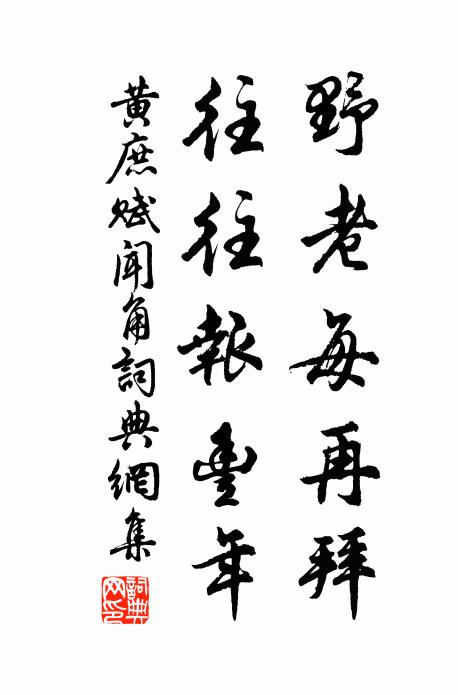 野老每再拜
往往報豐年
黃庶賦聞角詞典網集
詞典網印